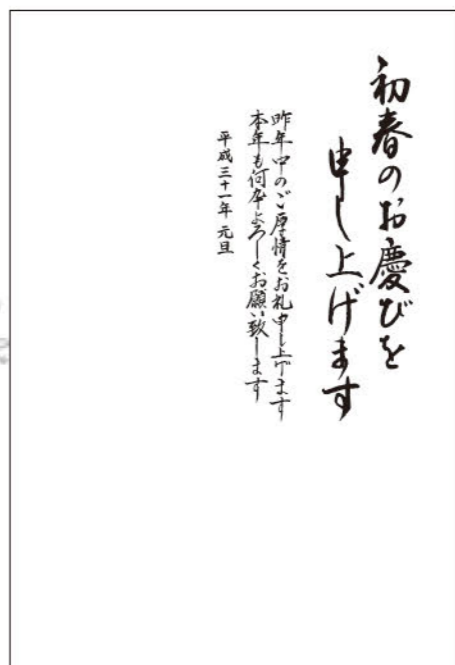 初春のお慶びを
申し上げます
昨年中のご厚情をお礼申し上げます
本年も何卒よろしくお願い致します
平成三十一年 元旦